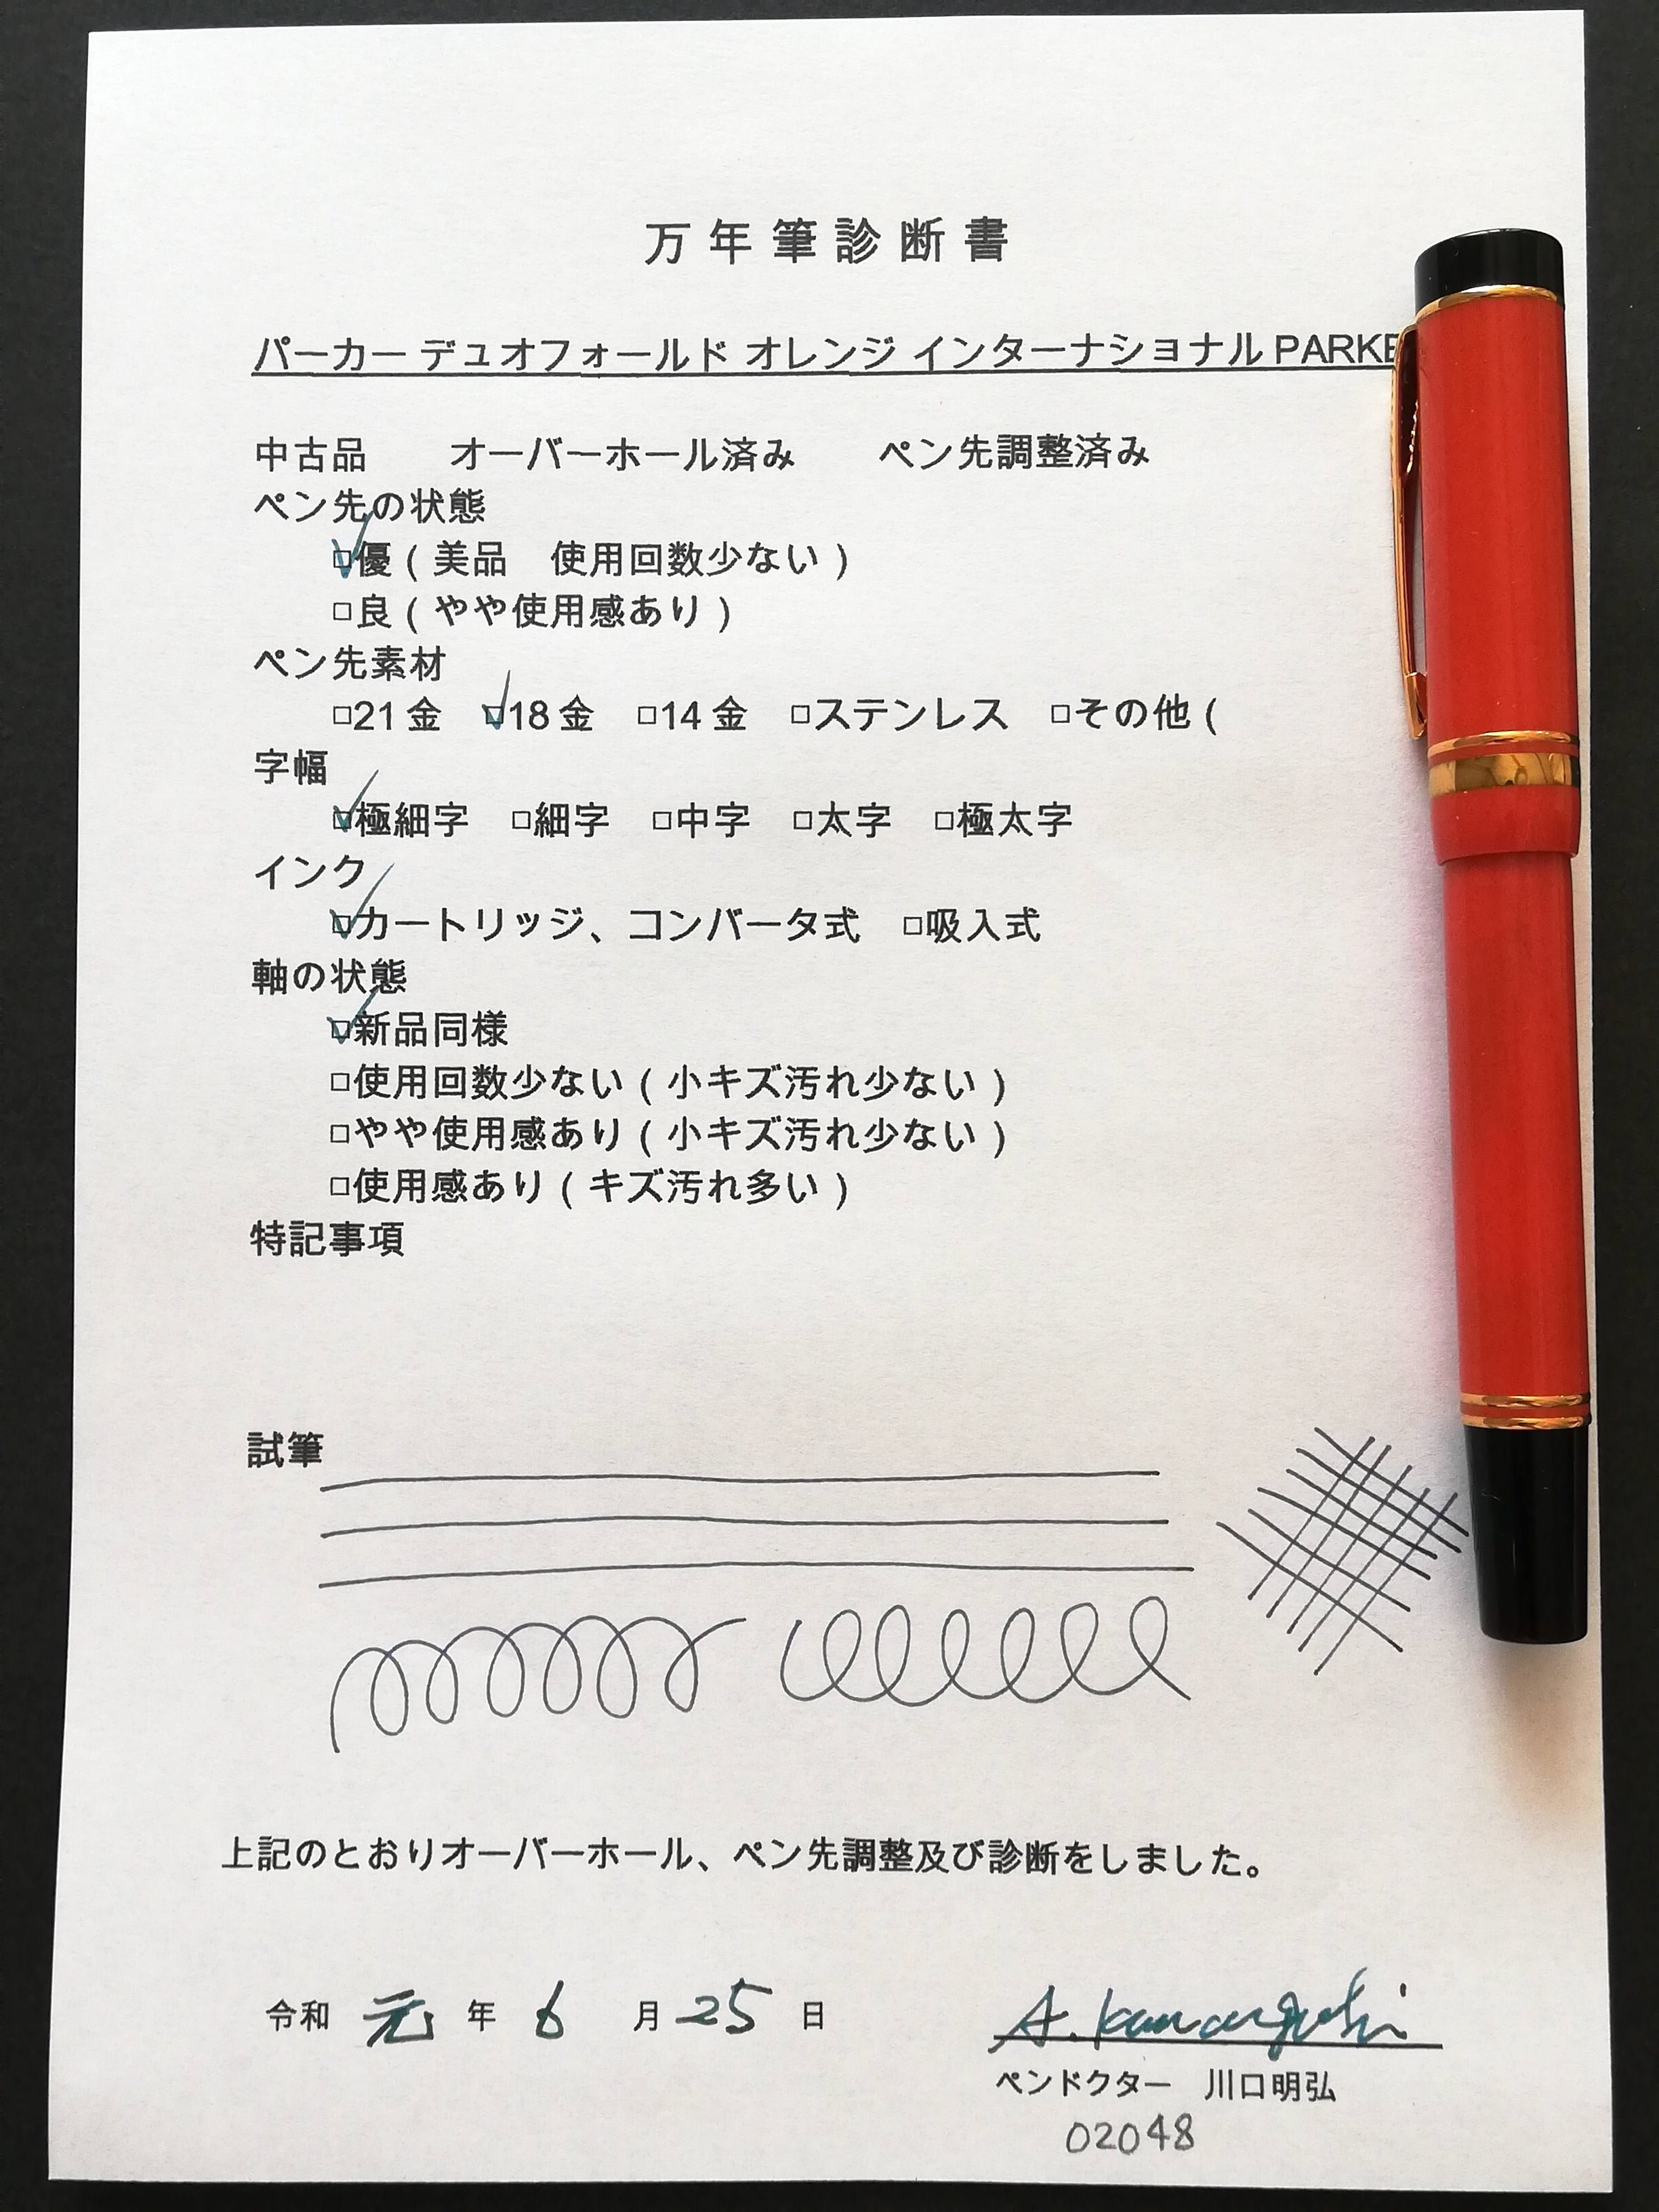 万年筆診断書
パーカー デュオフォールド オレンジ インターナショナル PARKE
中古品　　オーバーホール済み　　ペン先調整済み
ペン先の状態
☑優（美品　使用回数少ない）
□良（やや使用感あり）
ペン先素材
□21金　☑18金　□14金　□ステンレス　□その他（
字幅
☑極細字　□細字　□中字　□太字　□極太字
インク
☑カートリッジ、コンバータ式　□吸入式
軸の状態
☑新品同様
□使用回数少ない（小キズ汚れ少ない）
□やや使用感あり（小キズ汚れ少ない）
□使用感あり（キズ汚れ多い）
特記事項
試筆
上記のとおりオーバーホール、ペン先調整及び診断をしました。
令和 元 年 6 月 25 日
A. Kawaguchi
ペンドクター　川口明弘
02048